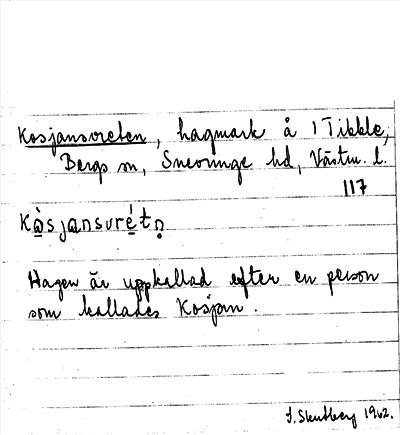 Kosjansvreten, hagmark å 1 Tibble,
Bergs sn, Snevringe hd, Västm. l.
117
Kòsjansvrétn̥
Hagen är uppkallad efter en person
som kallades Kosjan.
1962.